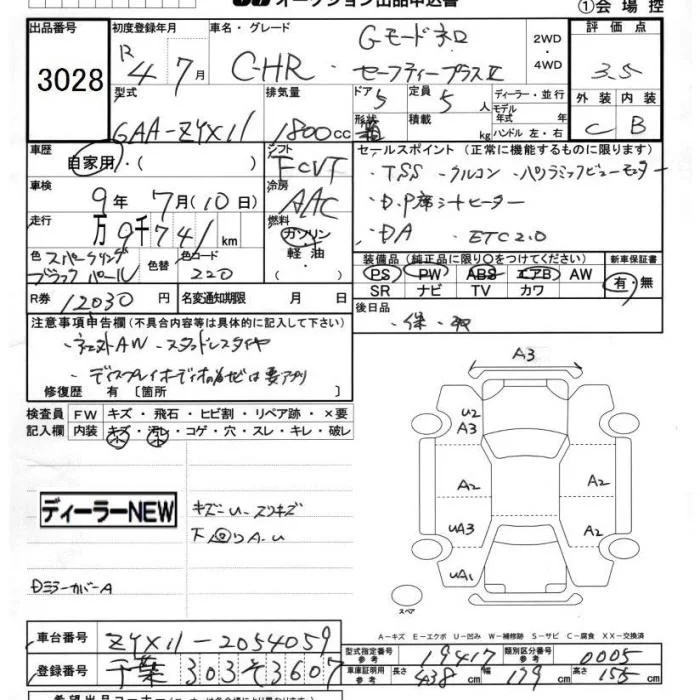 オークション出品申込書
①会場控
出品番号 3028
初度登録年月 R 4年 7月
車名・グレード C-HR・GモードネロセーフティープラスⅡ
2WD・4WD
評価点 3.5
外装 C 内装 B
型式 6AA-ZYX11
排気量 1800cc
ドア 5
形状 箱
定員 5人
積載 kg
ディーラー・並行
モデル年式 年式
ハンドル 左・右
車歴 自家用・( )
シフト FCVT
車検 9年 7月(10日)
冷房 AAC
走行 万9千741km
燃料 ガソリン・軽油
セールスポイント (正常に機能するものに限ります)
・TSS ・クルコン ・パノラミックビューモニター
・D.P席シートヒーター
・DA ・ETC2.0
色 スパークリングブラックパール
色替
色コード 220
装備品 (純正品に限り○をつけてください)
PS PW ABS エアB AW
SR ナビ TV カワ
新車保証書 有・無
R券 12030円
名変通知期限 月 日
後日品
・保・取
注意事項申告欄(不具合内容等は具体的に記入して下さい)
・ネェ外AW ・スタッドレスタイヤ
・ディスプレイオーディオのナビは要アプリ
修復歴 有〔箇所
検査員記入欄
FW キズ・飛石・ヒビ割・リペア跡・×要
内装 キズ・汚レ・コゲ・穴・スレ・キレ・破レ
小 小
ディーラーNEW
キズ-U-スリキズ
下回りA.U
Dミラーカバー A
A3
U2
A3
A2
A2
UA3
A2
UA1
スペア
A-キズ E-エクボ U-凹み W-補修跡 S-サビ C-腐食 XX-交換済
車台番号 ZYX11-2054059
登録番号 千葉 303 そ 3607
型式指定番号 参考 19417
類別区分番号 参考 0005
車庫証明用 参考 長さ 438cm 幅 179cm 高さ 155cm